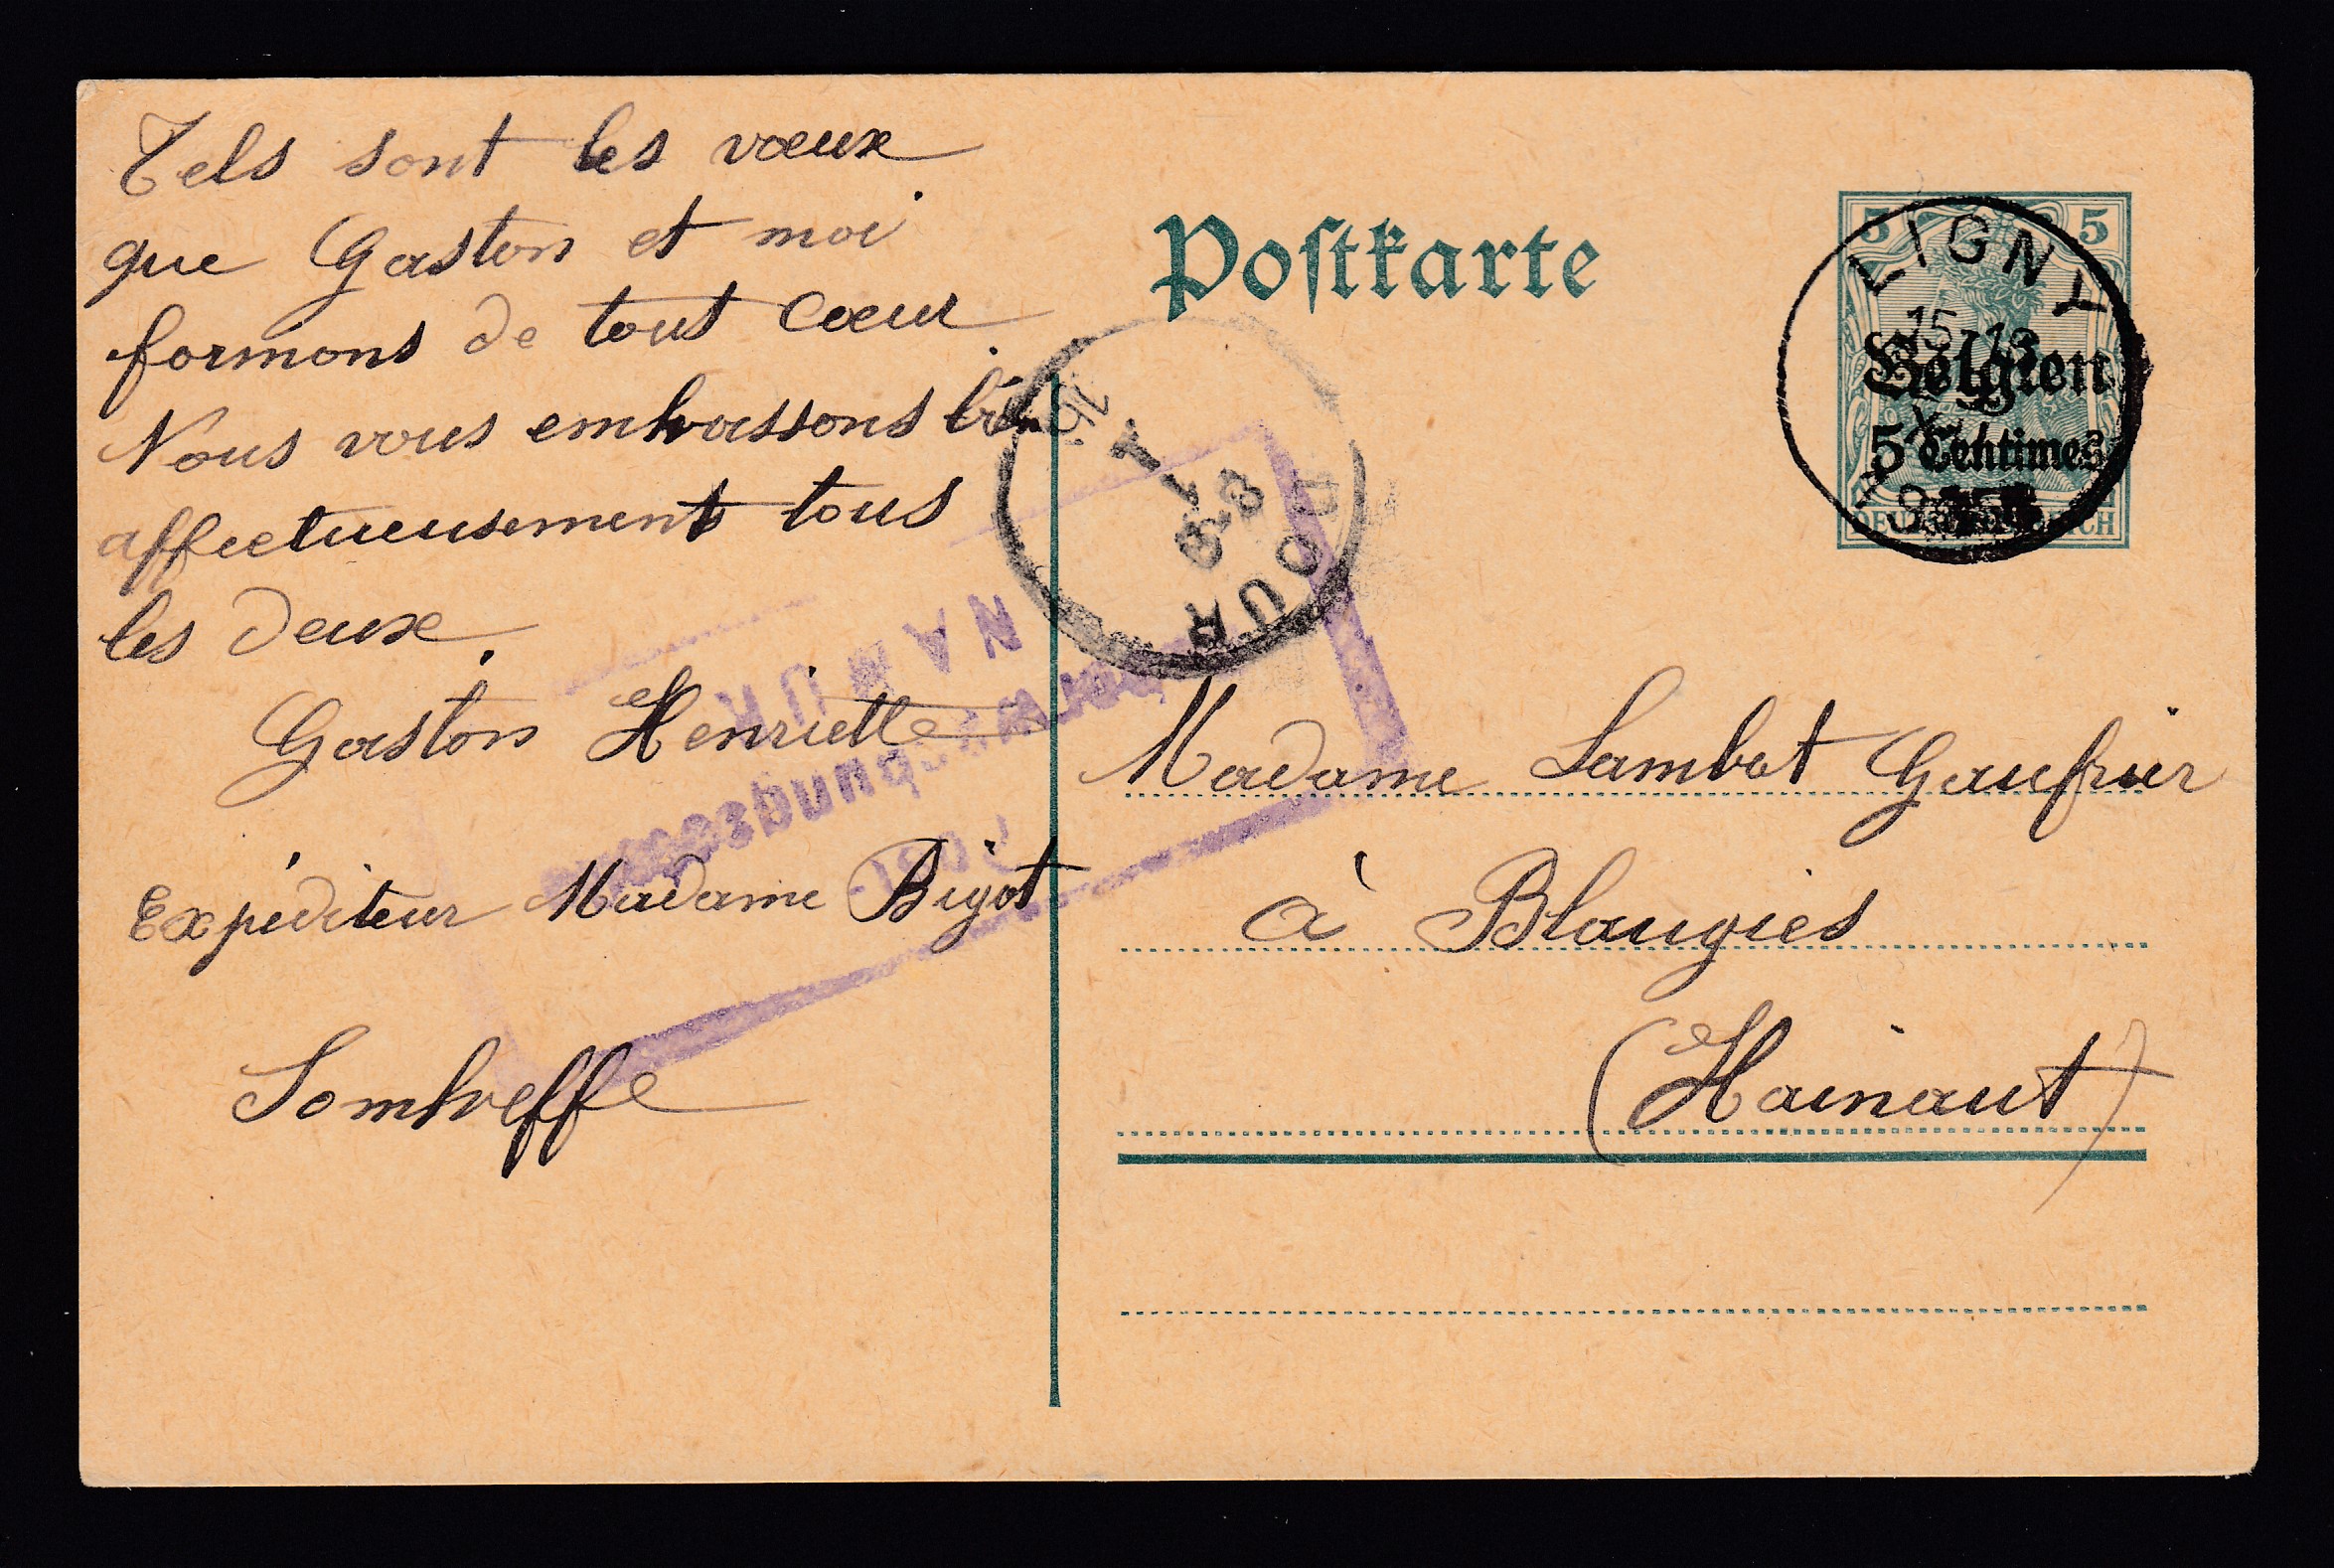 Tels sont les vœux
que Gaston et moi
formons de tout cœur.
Nous vous embrassons bien
affectueusement tous
les deux.
Gaston Henriette
Expéditeur Madame Bigot
Sombreffe
Postkarte
5 5
LIGNY
Belgien
5 Centimes
DOUR
8-9
NAMUR
Madame Lambot Gaufrier
à Blaugies
(Hainaut)